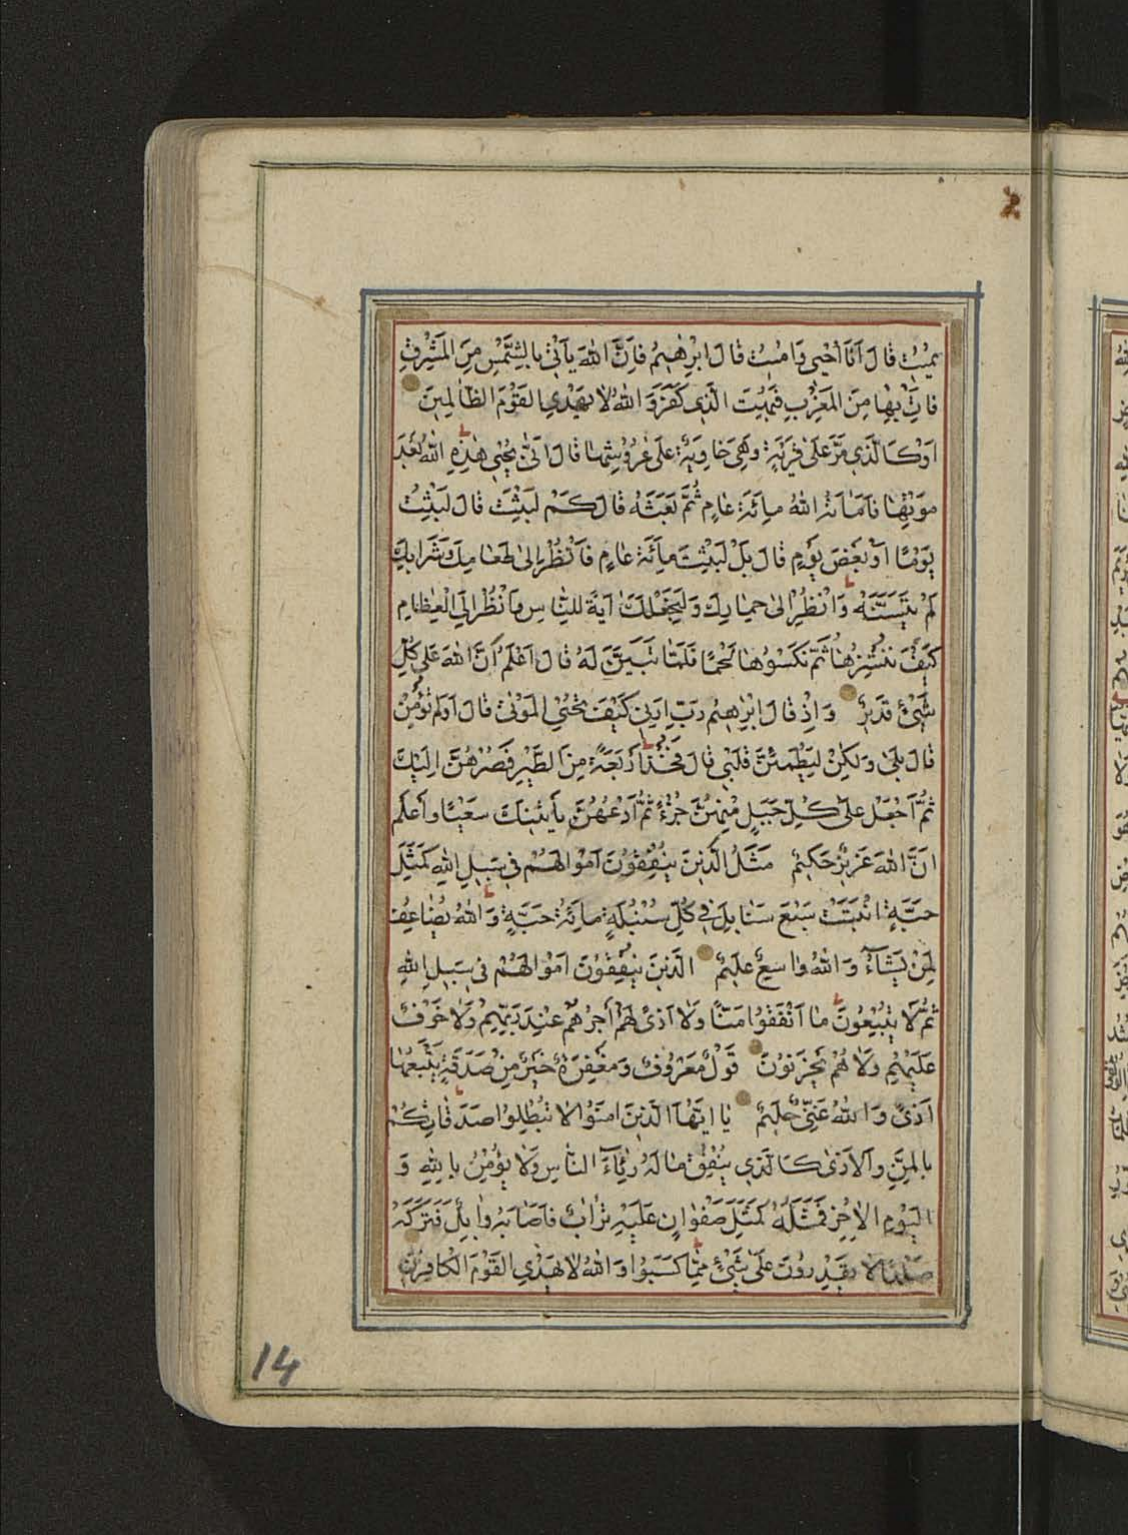 يُمِيْتُ قَالَ اَنَا اُحْيِي وَاُمِيْتُ قَالَ اِبْرٰهِيْمُ فَاِنَّ اللّٰهَ يَاْتِيْ بِالشَّمْسِ مِنَ الْمَشْرِقِ
فَاْتِ بِهَا مِنَ الْمَغْرِبِ فَبُهِتَ الَّذِي كَفَرَ وَ اللّٰهُ لَا يَهْدِي الْقَوْمَ الظَّالِمِيْنَ
اَوْ كَالَّذِي مَرَّ عَلٰى قَرْيَةٍ وَهِيَ خَاوِيَةٌ عَلٰى عُرُوْشِهَا قَالَ اَنّٰى يُحْيِي هٰذِهِ اللّٰهُ بَعْدَ
مَوْتِهَا فَاَمَاتَهُ اللّٰهُ مِائَةَ عَامٍ ثُمَّ بَعَثَهُ قَالَ كَمْ لَبِثْتَ قَالَ لَبِثْتُ
يَوْمًا اَوْ بَعْضَ يَوْمٍ قَالَ بَلْ لَبِثْتَ مِائَةَ عَامٍ فَانْظُرْ اِلٰى طَعَامِكَ وَشَرَابِكَ
لَمْ يَتَسَنَّهْ وَانْظُرْ اِلٰى حِمَارِكَ وَلِنَجْعَلَكَ آيَةً لِلنَّاسِ وَانْظُرْ اِلَى الْعِظَامِ
كَيْفَ نُنْشِزُهَا ثُمَّ نَكْسُوْهَا لَحْمًا فَلَمَّا تَبَيَّنَ لَهُ قَالَ اَعْلَمُ اَنَّ اللّٰهَ عَلٰى كُلِّ
شَيْءٍ قَدِيْرٌ وَ اِذْ قَالَ اِبْرٰهِيْمُ رَبِّ اَرِنِي كَيْفَ تُحْيِي الْمَوْتٰى قَالَ اَوَلَمْ تُؤْمِنْ
قَالَ بَلٰى وَلٰكِنْ لِيَطْمَئِنَّ قَلْبِي قَالَ فَخُذْ اَرْبَعَةً مِنَ الطَّيْرِ فَصُرْهُنَّ اِلَيْكَ
ثُمَّ اجْعَلْ عَلٰى كُلِّ جَبَلٍ مِنْهُنَّ جُزْءًا ثُمَّ ادْعُهُنَّ يَاْتِيْنَكَ سَعْيًا وَاعْلَمْ
اَنَّ اللّٰهَ عَزِيْزٌ حَكِيْمٌ مَثَلُ الَّذِيْنَ يُنْفِقُوْنَ اَمْوَالَهُمْ فِي سَبِيْلِ اللّٰهِ كَمَثَلِ
حَبَّةٍ اَنْبَتَتْ سَبْعَ سَنَابِلَ فِي كُلِّ سُنْبُلَةٍ مِائَةُ حَبَّةٍ وَ اللّٰهُ يُضَاعِفُ
لِمَنْ يَشَاءُ وَ اللّٰهُ وَاسِعٌ عَلِيْمٌ الَّذِيْنَ يُنْفِقُوْنَ اَمْوَالَهُمْ فِي سَبِيْلِ اللّٰهِ
ثُمَّ لَا يُتْبِعُوْنَ مَا اَنْفَقُوْا مَنًّا وَلَا اَذًى لَهُمْ اَجْرُهُمْ عِنْدَ رَبِّهِمْ وَلَا خَوْفٌ
عَلَيْهِمْ وَلَا هُمْ يَحْزَنُوْنَ قَوْلٌ مَعْرُوْفٌ وَمَغْفِرَةٌ خَيْرٌ مِنْ صَدَقَةٍ يَتْبَعُهَا
اَذًى وَ اللّٰهُ غَنِيٌّ حَلِيْمٌ يَا اَيُّهَا الَّذِيْنَ اٰمَنُوْا لَا تُبْطِلُوْا صَدَقَاتِكُمْ
بِالْمَنِّ وَالْاَذٰى كَالَّذِي يُنْفِقُ مَالَهُ رِئَاءَ النَّاسِ وَلَا يُؤْمِنُ بِاللّٰهِ وَ
الْيَوْمِ الْاٰخِرِ فَمَثَلُهُ كَمَثَلِ صَفْوَانٍ عَلَيْهِ تُرَابٌ فَاَصَابَهُ وَابِلٌ فَتَرَكَهُ
صَلْدًا لَا يَقْدِرُوْنَ عَلٰى شَيْءٍ مِمَّا كَسَبُوْا وَ اللّٰهُ لَا يَهْدِي الْقَوْمَ الْكَافِرِيْنَ
14